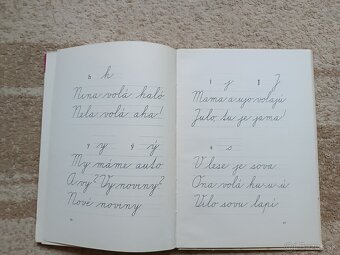 h h
Nina volá haló
Nela volá aha!
y y ý
My máme auto.
A vy? Vy noviny?
Nové noviny
j j J J
Mama a ujo volajú
Julo, tu je jama!
s s
V lese je sova
Ona volá hu-u-ú
Vilo sovu lapí